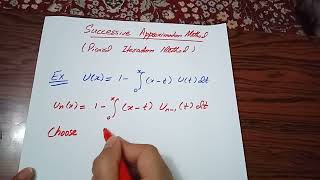 Successive Approximation Method
(Picard Iteration Method)
Ex U(x) = 1 - ∫₀ˣ (x-t) U(t) dt
Uₙ(x) = 1 - ∫₀ˣ (x-t) Uₙ₋₁(t) dt
Choose